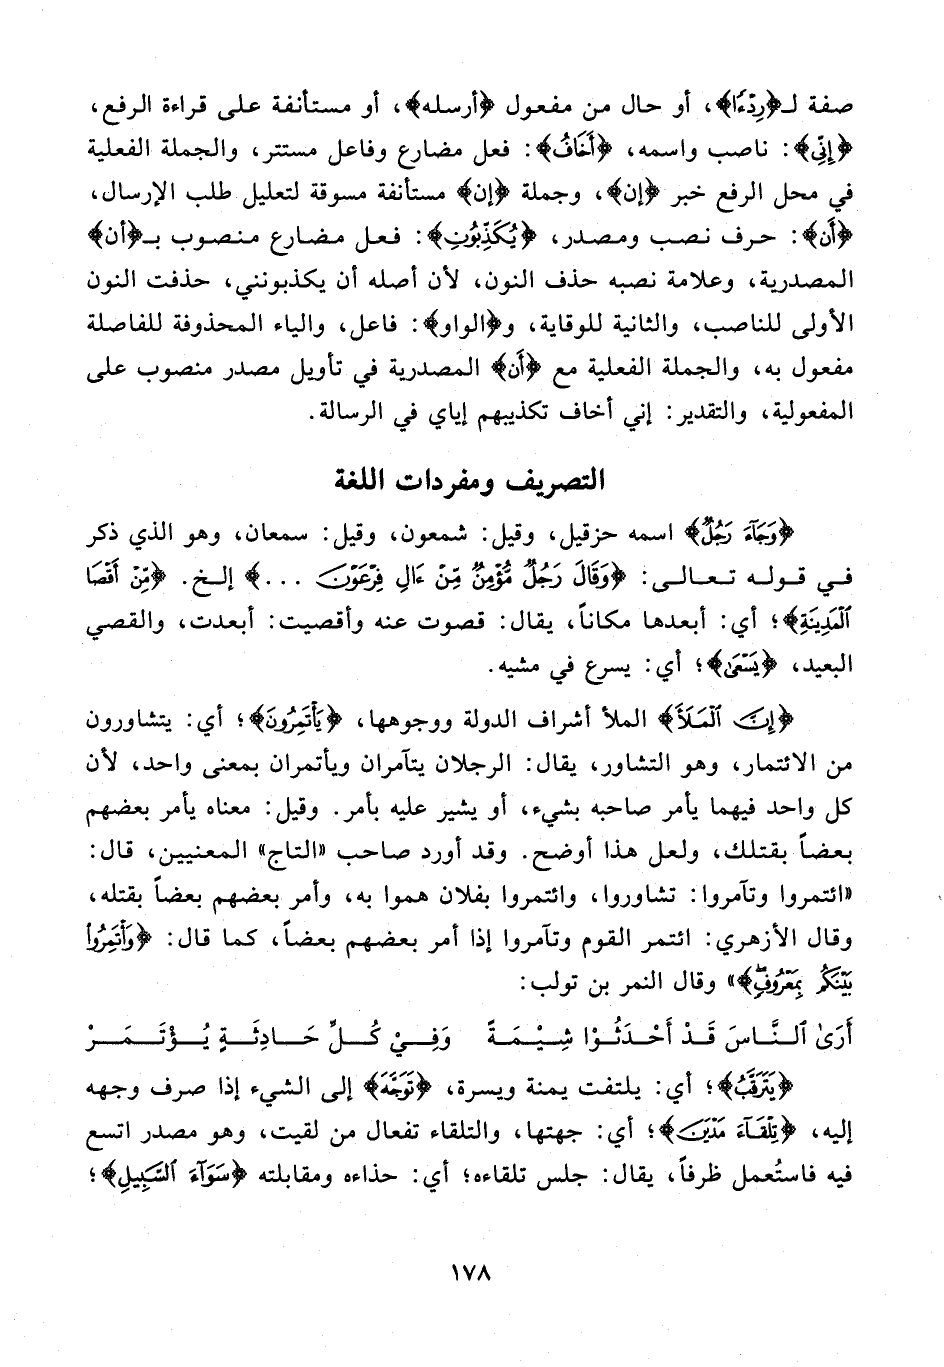 صفة لـ﴿رِدْءًا﴾، أو حال من مفعول ﴿أرسله﴾، أو مستأنفة على قراءة الرفع،
﴿إِنِّي﴾: ناصب واسمه، ﴿أَخَافُ﴾: فعل مضارع وفاعل مستتر، والجملة الفعلية
في محل الرفع خبر ﴿إن﴾، وجملة ﴿إن﴾ مستأنفة مسوقة لتعليل طلب الإرسال،
﴿أَن﴾: حرف نصب ومصدر، ﴿يُكَذِّبُونِ﴾: فعل مضارع منصوب بـ﴿أن﴾
المصدرية، وعلامة نصبه حذف النون، لأن أصله أن يكذبونني، حذفت النون
الأولى للناصب، والثانية للوقاية، و﴿الواو﴾: فاعل، والياء المحذوفة للفاصلة
مفعول به، والجملة الفعلية مع ﴿أَن﴾ المصدرية في تأويل مصدر منصوب على
المفعولية، والتقدير: إني أخاف تكذيبهم إياي في الرسالة.
التصريف ومفردات اللغة
﴿وَجَآءَ رَجُلٌ﴾ اسمه حزقيل، وقيل: شمعون، وقيل: سمعان، وهو الذي ذكر
في قوله تعالى: ﴿وَقَالَ رَجُلٌ مُّؤْمِنٌ مِّنْ ءَالِ فِرْعَوْنَ ...﴾ إلخ. ﴿مِّنْ أَقْصَا
ٱلْمَدِينَةِ﴾؛ أي: أبعدها مكاناً، يقال: قصوت عنه وأقصيت: أبعدت، والقصي
البعيد، ﴿يَسْعَىٰ﴾؛ أي: يسرع في مشيه.
﴿إِنَّ ٱلْمَلَأَ﴾ الملأ أشراف الدولة ووجوهها، ﴿يَأْتَمِرُونَ﴾؛ أي: يتشاورون
من الائتمار، وهو التشاور، يقال: الرجلان يتآمران ويأتمران بمعنى واحد، لأن
كل واحد فيهما يأمر صاحبه بشيء، أو يشير عليه بأمر. وقيل: معناه يأمر بعضهم
بعضاً بقتلك، ولعل هذا أوضح. وقد أورد صاحب «التاج» المعنيين، قال:
«ائتمروا وتآمروا: تشاوروا، وائتمروا بفلان هموا به، وأمر بعضهم بعضاً بقتله،
وقال الأزهري: ائتمر القوم وتآمروا إذا أمر بعضهم بعضاً، كما قال: ﴿وَأْتَمِرُوا۟
بَيْنَكُم بِمَعْرُوفٍ ۖ﴾» وقال النمر بن تولب:
أَرَىٰ ٱلنَّاسَ قَدْ أَحْدَثُوْا شِيْمَةً وَفِيْ كُلِّ حَادِثَةٍ يُؤْتَمَرْ
﴿يَتَرَقَّبُ﴾؛ أي: يلتفت يمنة ويسرة، ﴿تَوَجَّهَ﴾ إلى الشيء إذا صرف وجهه
إليه، ﴿تِلْقَآءَ مَدْيَنَ﴾؛ أي: جهتها، والتلقاء تفعال من لقيت، وهو مصدر اتسع
فيه فاستُعمل ظرفاً، يقال: جلس تلقاءه؛ أي: حذاءه ومقابلته ﴿سَوَآءَ ٱلسَّبِيلِ﴾؛
١٧٨